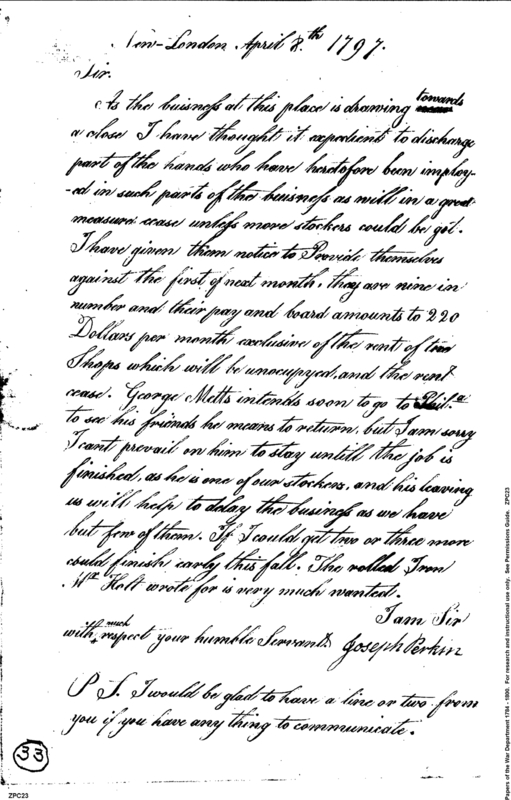 New-London April 8.th 1797.
Sir.
As the buisness at this place is drawing towards
a close I have thought it expedient to discharge
part of the hands who have heretofore been imploy-
-ed in such parts of the buisness as will in a great
measure cease unless more stockers could be got.
I have given them notice to Provide themselves
against the first of next month. they are nine in
number and their pay and board amounts to 220
Dollars per month exclusive of the rent of two
Shops which will be unocupyed, and the rent
cease. George Metts intends soon to go to Phil.a
to see his friends he means to return, but I am sorry
I cant prevail on him to stay untill the job is
finished, as he is one of our stockers, and his leaving
us will help to delay the business as we have
but few of them. If I could get two or three more
could finish early this fall. The rolled Iron
Mr Holt wrote for is very much wanted.
I am Sir
with much respect your humble Servant Joseph Perkin
P S. I would be glad to have a line or two from
you if you have any thing to communicate.
33
ZPC23
Papers of the War Department 1784 - 1800. For research and instructional use only. See Permissions Guide. ZPC23